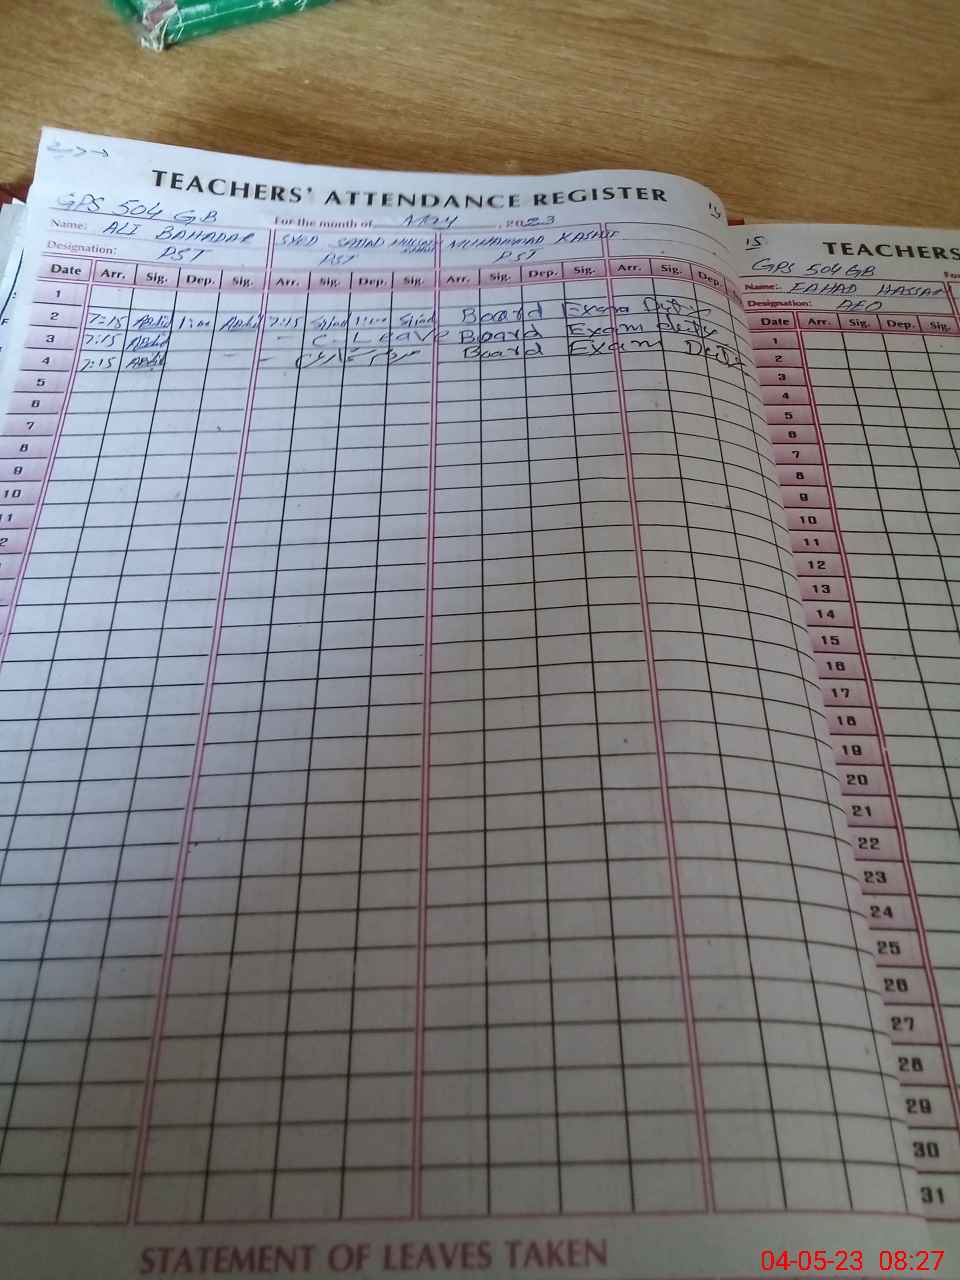 TEACHERS' ATTENDANCE REGISTER
GPS 504 GB For the month of May, 2023
Name: ALI BAHADAR SYED SAJJAD MUHAMMAD KASHIF
Designation: PST PST PST
Date Arr. Sig. Dep. Sig. Arr. Sig. Dep. Sig. Arr. Sig. Dep. Sig. Arr. Sig. Dep.
1
2 7:15 1:00 7:15 1:00 Board Exam Duty
3 7:15 C. Leave Board Exam Duty
4 7:15 Board Exam Duty
5
6
7
8
9
10
11
2
STATEMENT OF LEAVES TAKEN
15
TEACHERS
GPS 504 GB For
Name: FAHAD HASSAN
Designation:
Date Arr. Sig. Dep. Sig.
1
2
3
4
5
6
7
8
9
10
11
12
13
14
15
16
17
18
19
20
21
22
23
24
25
26
27
28
29
30
31
04-05-23 08:27